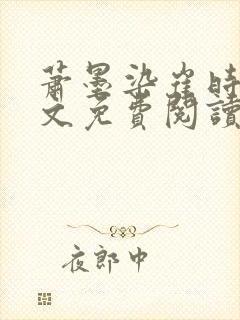 萧墨染崔时
文免费阅读
夜郎中